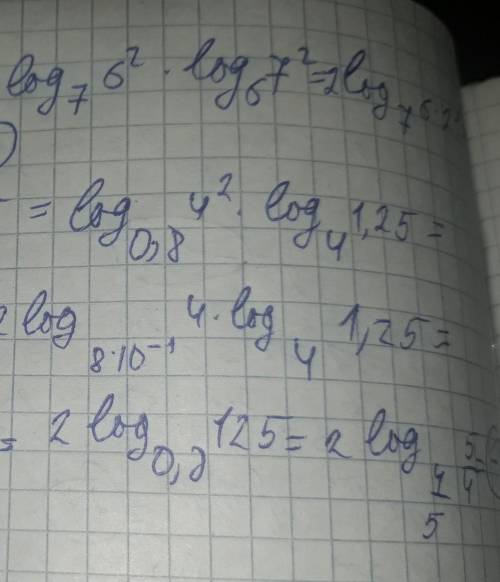 log₇ 6² · log₆ 7² = 2 log₇ 6
)
= log₀,₈ 4² · log₄ 1,25 =
2 log₈·₁₀⁻¹ 4 · log₄ 1,25 =
= 2 log₀,₈ 125 = 2 log_(4/5) 5/4 =